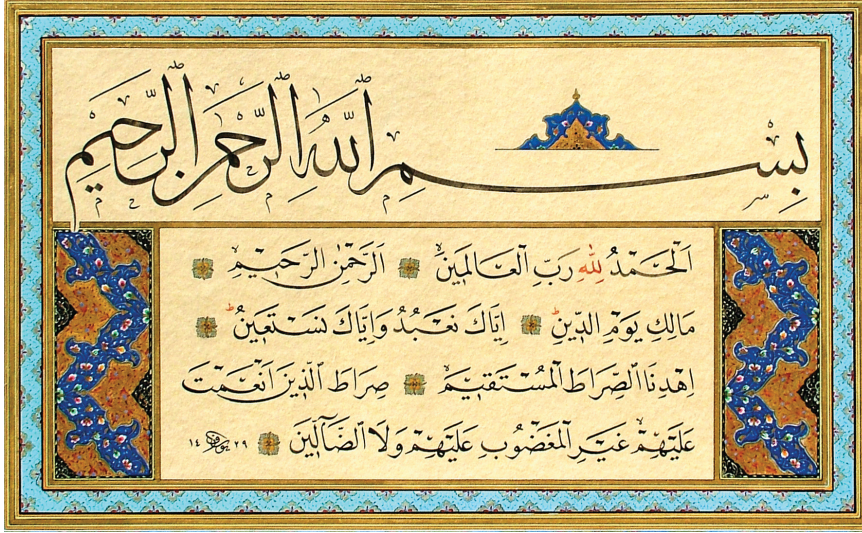 بِسْمِ اللّٰهِ الرَّحْمٰنِ الرَّحِيمِ
اَلْحَمْدُ لِلّٰهِ رَبِّ الْعَالَمِينَ ۞ اَلرَّحْمٰنِ الرَّحِيمِ ۞
مَالِكِ يَوْمِ الدِّينِ ۞ اِيَّاكَ نَعْبُدُ وَاِيَّاكَ نَسْتَعِينُ ۞
اِهْدِنَا الصِّرَاطَ الْمُسْتَقِيمَ ۞ صِرَاطَ الَّذِينَ اَنْعَمْتَ
عَلَيْهِمْ غَيْرِ الْمَغْضُوبِ عَلَيْهِمْ وَلَا الضَّٓالِّينَ ۞ ١٤٢٩